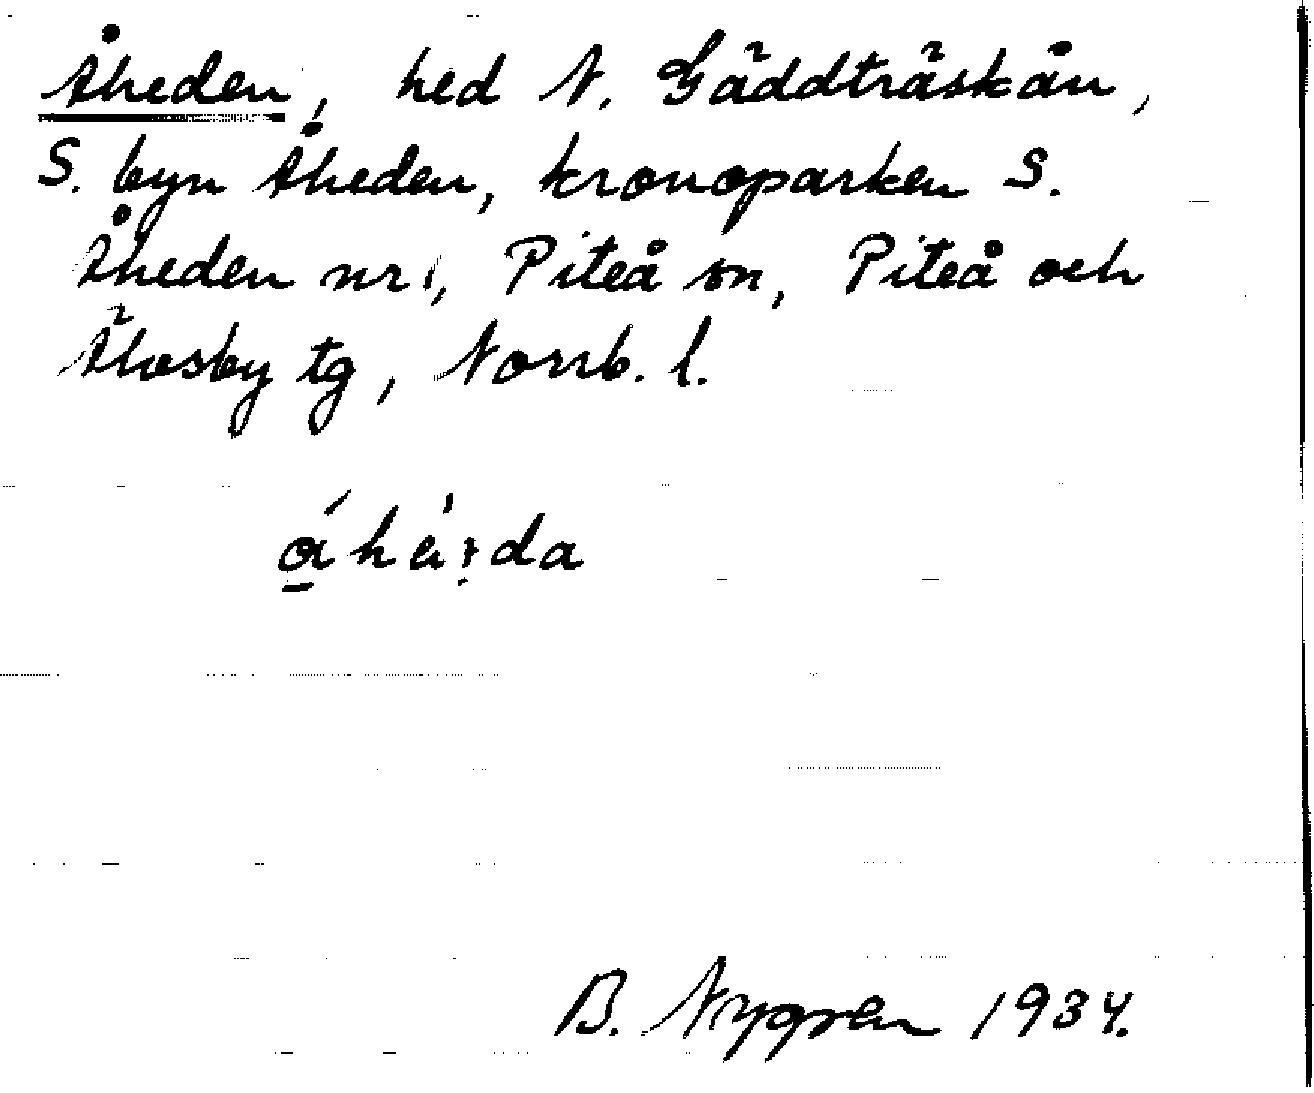 Åheden, hed N. Gäddträskån,
S. byn Åheden, kronoparken S.
Åheden nr 1, Piteå sn, Piteå och
Älvsby tg, Norrb. l.
B. Nygren 1934.